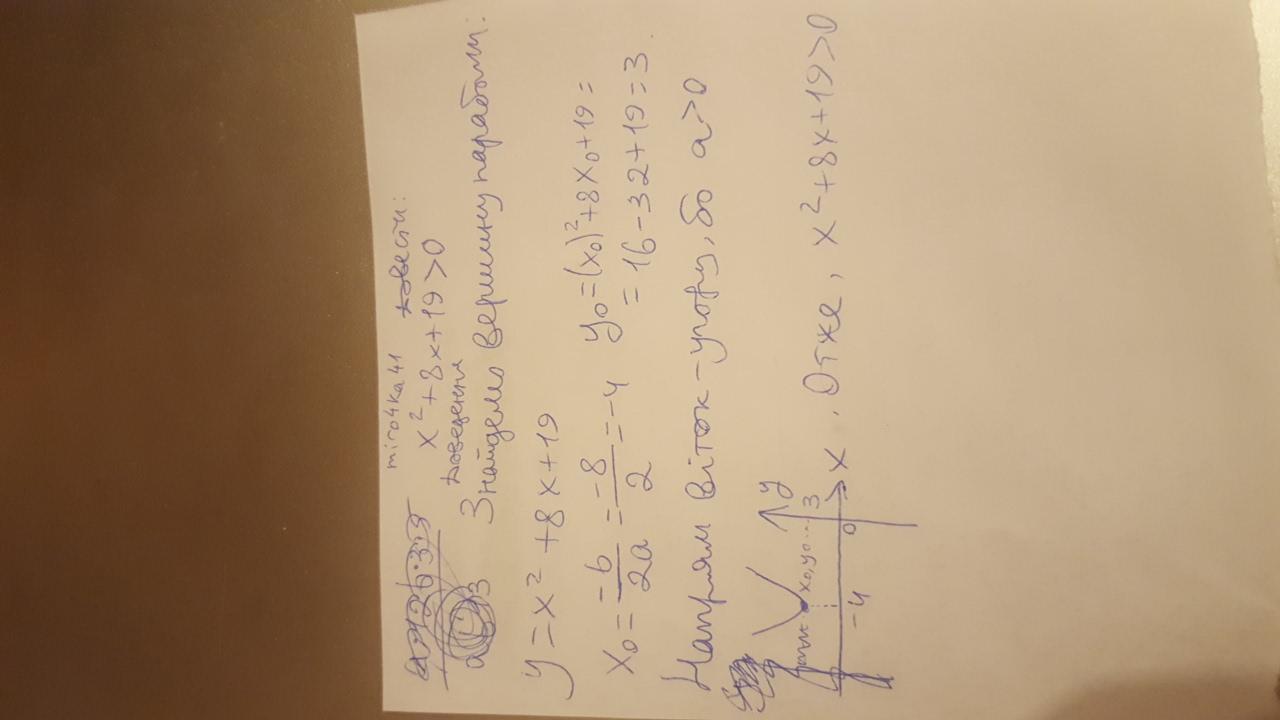 miro4ka41 Довести:
x² + 8x + 19 > 0
Доведення
Знайдемо вершину параболи:
y = x² + 8x + 19
x₀ = -b/2a = -8/2 = -4 y₀ = (x₀)² + 8x₀ + 19 =
= 16 - 32 + 19 = 3.
Напрям віток - угору, бо a > 0
y
x₀, y₀ 3
-4 0 x. Отже, x² + 8x + 19 > 0